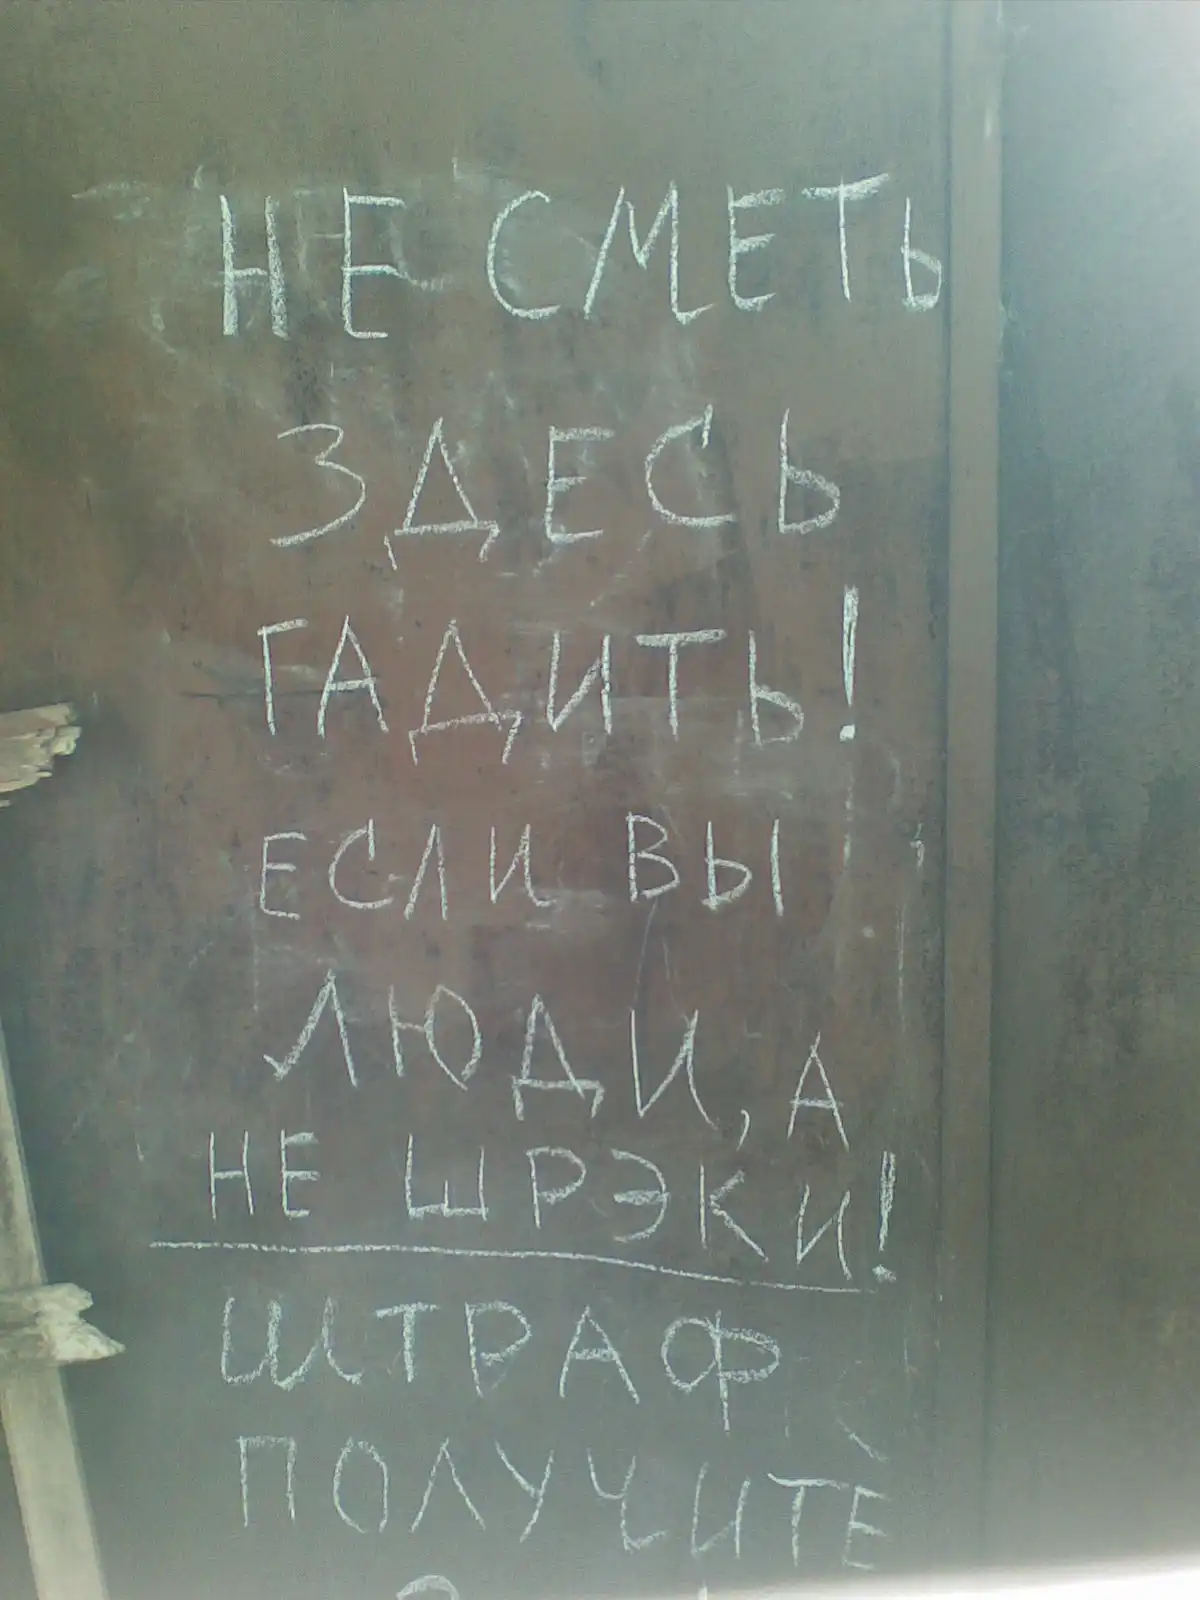 НЕ СМЕТЬ
ЗДЕСЬ
ГАДИТЬ!
ЕСЛИ ВЫ
ЛЮДИ, А
НЕ ШРЭКИ!
ШТРАФ
ПОЛУЧИТЕ